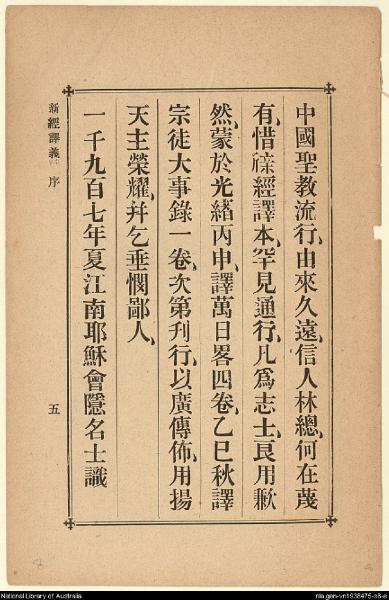 中國聖教流行、由來久遠、信人林總、何在蔑
有、惜經譯本、罕見通行、凡爲志士、良用歉
然、蒙於光緒丙申、譯萬日畧四卷、乙巳秋譯
宗徒大事錄一卷、次第刊行、以廣傳佈、用揚
天主榮耀、幷乞垂憫鄙人、
一千九百七年夏江南耶穌會隱名士識
新經譯義 序 五
National Library of Australia
nla.gen-vn1938475-s8-e